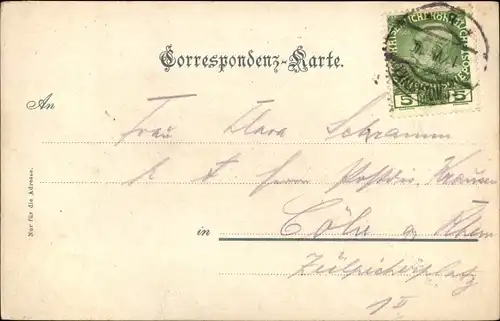 Correspondenz-Karte.
An
Frau Clara Schramm
Herrn
in Cöln a Rhein
Zülpicherplatz
1 II
Nur für die Adresse.
5 5